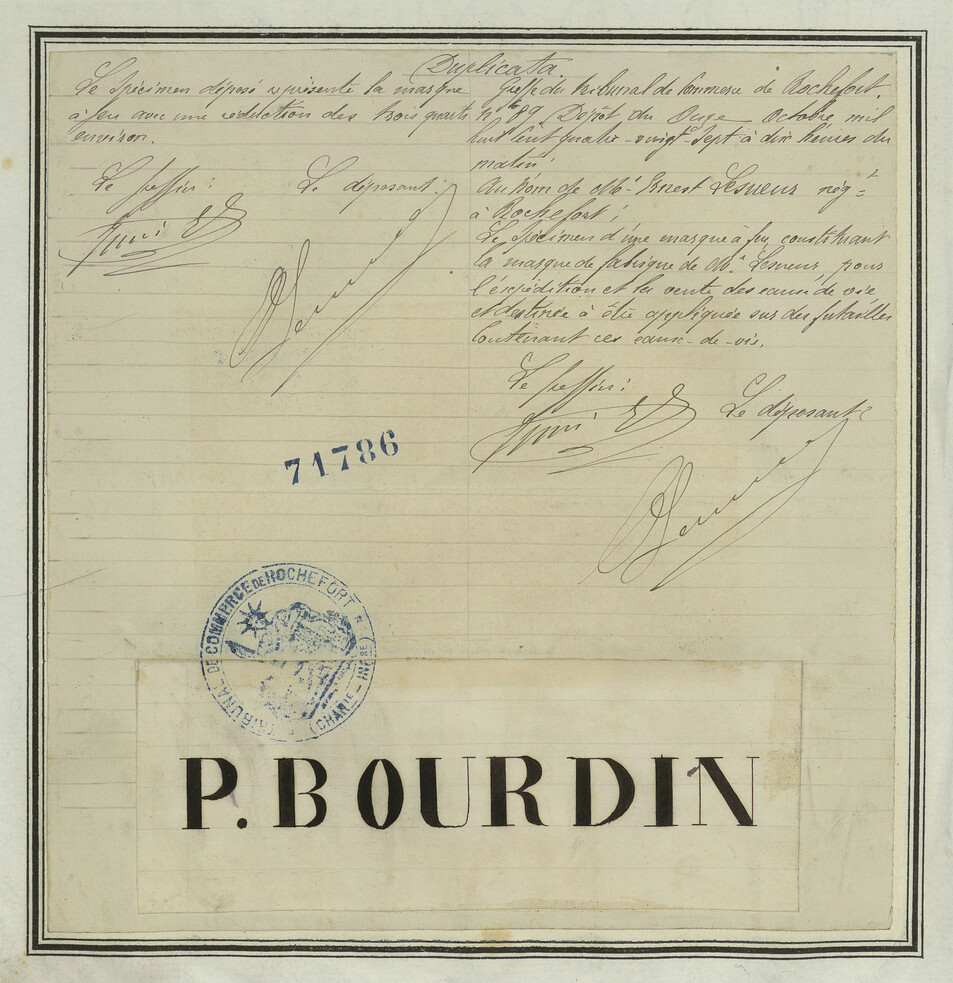 Duplicata.
Le Spécimen déposé représente la marque
à feu avec une réduction des trois quarts
environ.
Le greffier :
Le déposant :
Greffe du Tribunal de Commerce de Rochefort.
N° 89 Dépôt du Onze Octobre mil
huit cent quatre-vingt-sept à dix heures du
matin ;
Au Nom de Mr. Ernest Lesueur nég-t
à Rochefort ;
Le Spécimen d'une marque à feu constituant
la marque de fabrique de Mr. Lesueur pour
l'expédition et la vente des eaux de vie
et destinée à être appliquée sur des futailles
contenant ces eaux-de-vie.
Le greffier :
Le déposant
71786
TRIBUNAL DE COMMERCE DE ROCHEFORT
(CHARTE-INFRE)
P. BOURDIN